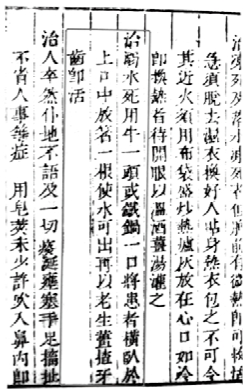 治凍死及冬月水溺死者但胸前微熱可救
急須脫去濕衣換好人貼身熱衣包之不可令
其近火須用布袋盛炒熱爐灰放在心口如冷
卽換熱者待開眼以溫酒薑湯灌之
治溺水死用牛一頭或鐵鍋一口將患者橫臥於
上口中放箸一根使水可出再以老生薑揸牙
齒卽活
治人卒然仆地不語及一切痰延壅塞手足搐搦
不省人事等症　用皂莢末少許吹入鼻內卽